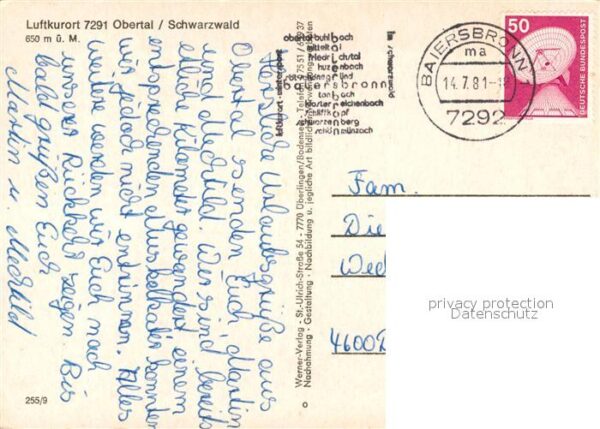 Luftkurort 7291 Obertal / Schwarzwald
650 m ü. M.
Herzliche Urlaubsgrüße aus
Obertal senden Euch Martin
und Mechtild. Wir sind bereits
etliche Kilometer gewandert einem
entsprechenden Muskelkater konnten
wir jedoch nicht entrinnen. Alles
weitere werden wir Euch nach
unserer Rückkehr zeigen. Bis
bald grüßen Euch
Martin u. Mechtild
255/9
Werner-Verlag · St.-Ulrich-Straße 54 · 7770 Überlingen/Bodensee · Telefon
Nachahmung · Gestaltung · Nachbildung u. jegliche Art bildlicher
luftkurort · wintersport
obertal-buhlbach
mitteltal
friedrichstal
huzenbach
baiersbronn
tonbach
kloster reichenbach
schönmünzach
schwarzenberg
im schwarzwald
BAIERSBRONN
ma
14.7.81-18
7292
50
DEUTSCHE BUNDESPOST
Fam.
Die
4600
privacy protection
Datenschutz